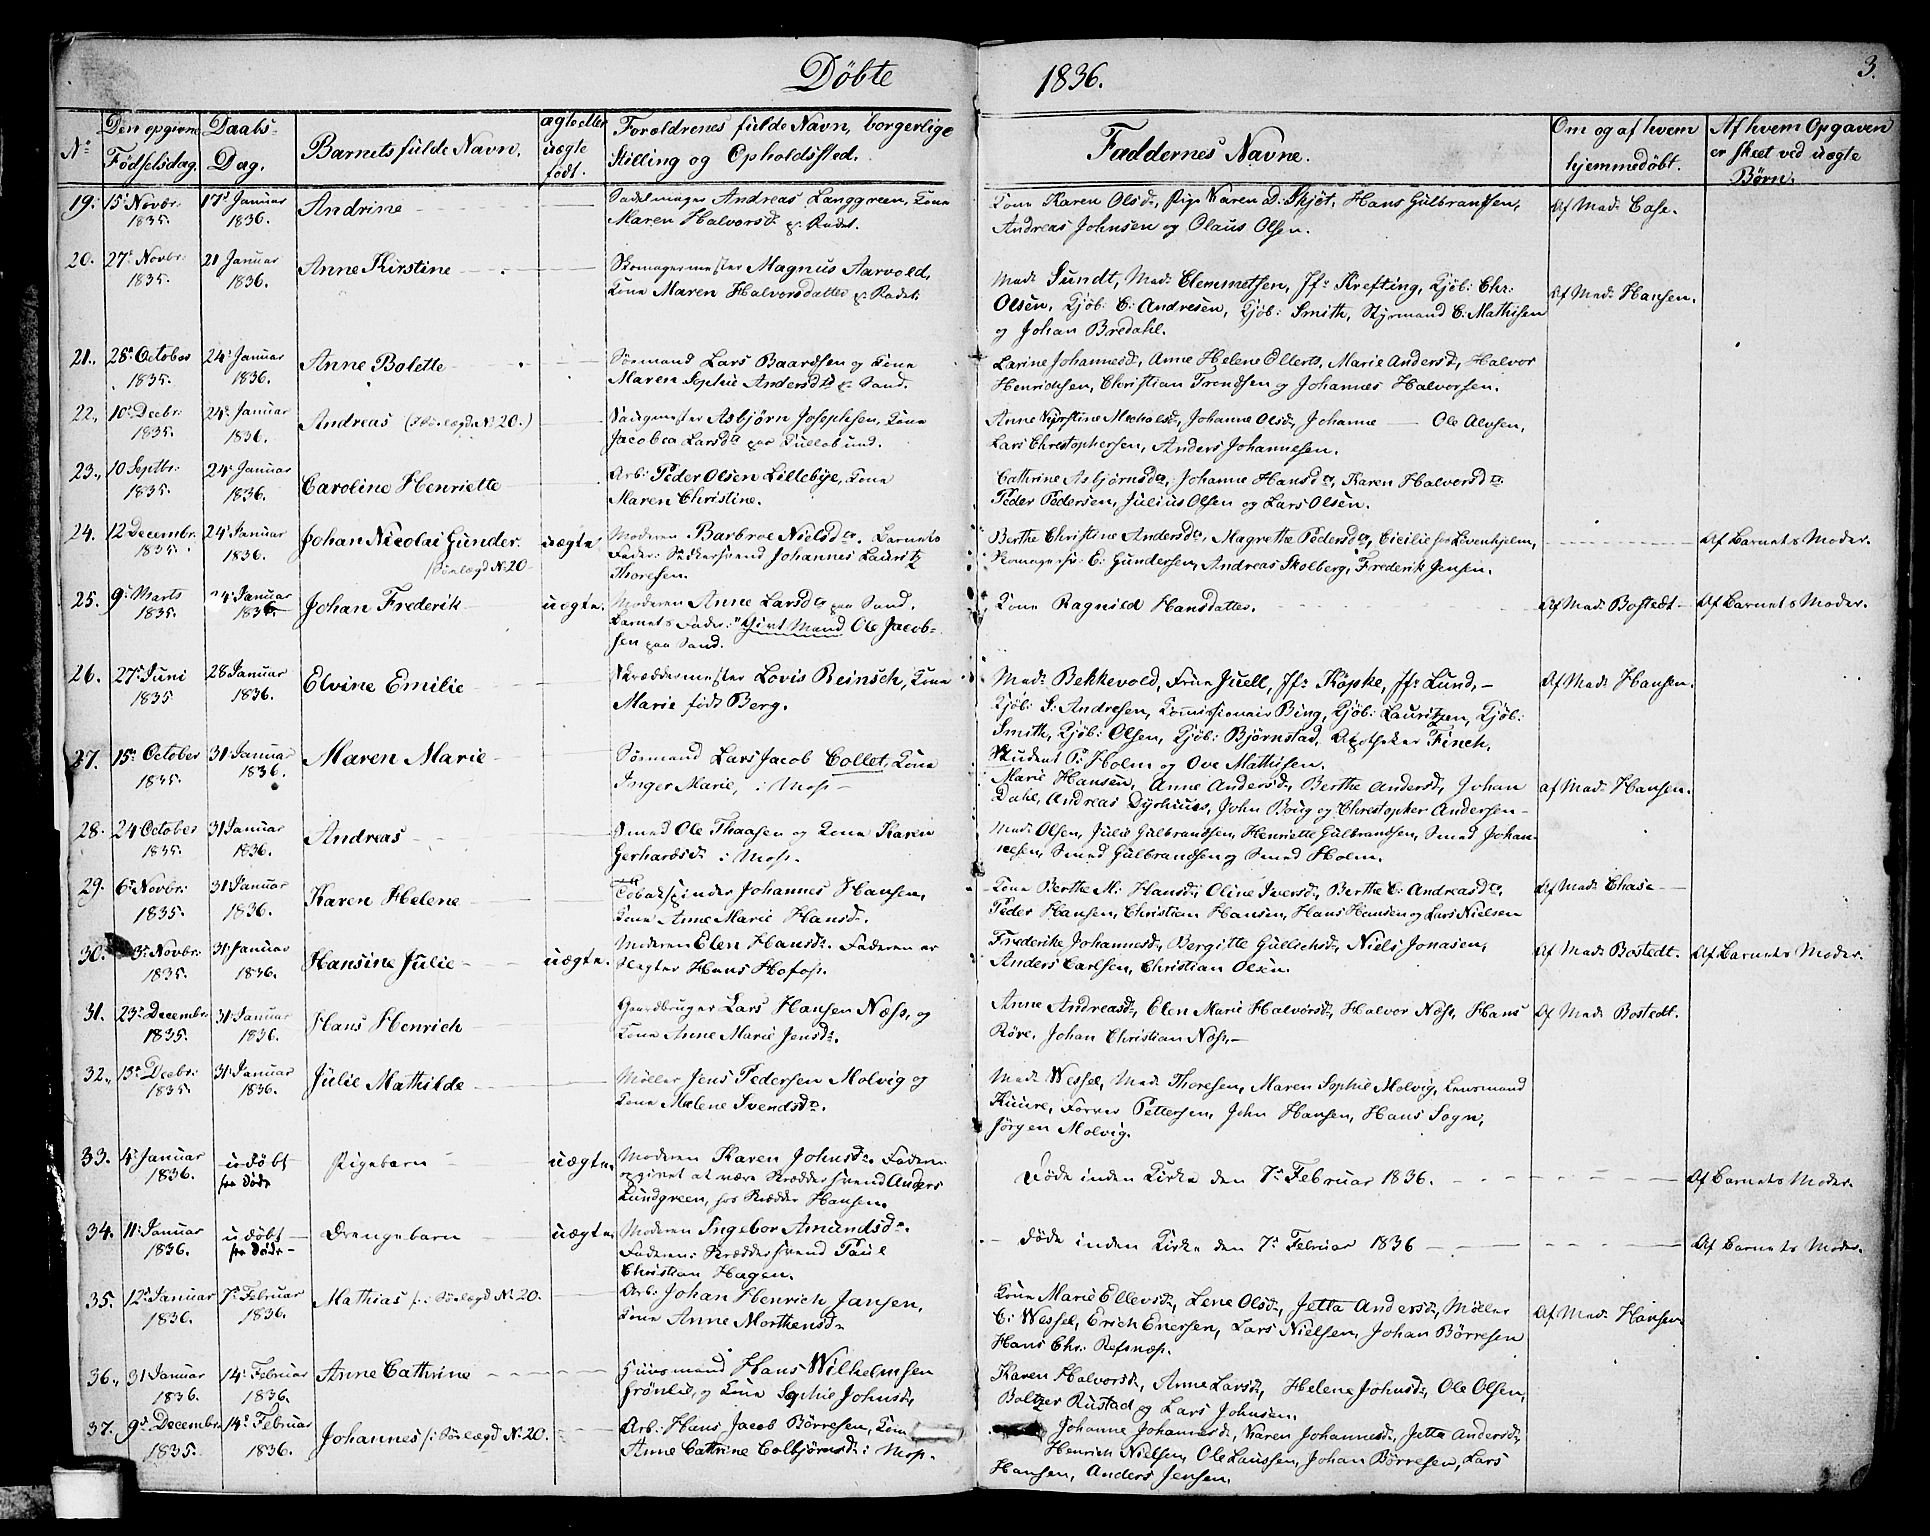 Døbte 1836. 3.
No
Den opgivne Fødselsdag.
Daabs-Dag.
Barnets fulde Navn.
ægte eller uægte født.
Forældrenes fulde Navn, borgerlige Stilling og Opholdssted.
Faddernes Navne.
Om og af hvem hjemmedøbt.
Af hvem Opgaven er skeet ved uægte Børn.
19. 15de Novbr: 1835. 17de Januar 1836. Andrine
Sadelmager Andreas Langgreen, Kone
Maren Halvorsd. p: Radet.
Kone Karen Olsd., Pige Karen D: Skjøt, Hans Gulbrandsen,
Andreas Johnsen og Olaus Olsen.
Af Mad: Case.
20. 27de Novbr: 1835. 21 Januar 1836. Anne Kirstine
Skomagermester Magnus Aarvold,
Kone Maren Halvorsdatter p: Radet.
Mad: Sundt, Mad: Clemmetsen, Jfr: Krefting, Kjøb: Chr:
Olsen, Kjøb: C: Andresen, Kjøb: Smith, Styrmand C: Mathisen
og Johan Bredahl.
Af Mad: Hansen.
21. 28de October 1835. 24de Januar 1836. Anne Bolette
Sømand Lars Baardsen og Kone
Maren Sophie Andersd. p: Sand.
Larine Johannesd., Anne Helene Ellerts, Marie Andersd., Halvor
Henrichsen, Christian Trondsen og Johannes Halvorsen.
22. 10de Decbr: 1835. 24de Januar 1836. Andreas (Sølægd No 20.)
Saugmester Asbjørn Josephsen, Kone
Jacobea Larsd. paa
Johanne Olsd., Johanne — Ole Alvsen,
Lars Christophersen, Anders Johannesen.
23. 10 Septbr: 1835. 24de Januar 1836. Caroline Henriette
Arb: Peder Olsen Lillebye, Kone
Maren Christine.
Cathrine Asbjørnsd., Johanne Hansd., Karen Halvorsd.
Peder Pedersen, Julius Olsen og Lars Olsen.
24. 12 Decembr. 1835. 24de Januar 1836. Johan Nicolai Gunder.
/Sølægd No 20 uægte
Moderen Barbroe Nielsd. Barnets
Fader: Johannes Lauritz
Thoresen.
Berthe Christine Andersd., Magrethe Pedersd., Cicilie hos Levenhjelm,
Skomagersv: E: Gundersen, Andreas Skolberg, Frederik Jensen.
Af Barnets Moder.
25. 9de Marts 1835. 24de Januar 1836. Johan Frederik uægte.
Moderen Anne Larsd. paa Sand.
Barnets Fader: "Givt Mand Ole Jacob-
sen paa Sand.
Kone Ragnild Hansdatter.
Af Mad: Bostedt
Af Barnets Moder.
26. 27de Juni 1835 28 Januar 1836. Elvine Emilie
Skræddermester Lovis Reinsch, Kone
Marie født Berg.
Mad: Bekkevold, Frue Juell, Jfr: Köpke, Jfr: Lund,
Kjøb: S: Andresen, Commissionair Bing, Kjøb: Lauritzen, Kjøb:
Smith, Kjøb: Olsen, Kjøb: Bjørnstad, Apotheker Finch.
Student P: Holm og Ove Mathisen.
Af Mad: Hansen.
27. 15de October 1835. 31 Januar 1836. Maren Marie
Sømand Lars Jacob Collet, Kone
Inger Marie, i Moss
Marie Hansen, Anne Andersd., Berthe Andersd., Johan
Dahl, Andreas Dyrhuus, John Boug og Christopher Andersen
af Mad: Hansen.
28. 24 October 1835. 31 Januar 1836. Andreas
Smed Ole Thaasen og Kone Karen
Gerhardsd. i Moss.
Mad: Olsen, Julie Gulbrandsen, Henriette Gulbrandsen, Smed Johan-
nesen, Smed Gulbrandsen og Smed Holm.
29. 6te Novbr: 1835. 31 Januar 1836. Karen Helene
Tobakspinder Johannes Hansen,
Kone Anne Marie Hansd.
Kone Berthe M: Hansd:, Oline Iversd., Berthe C: Andreasd.,
Peder Hansen, Christian Hansen, Hans Hansen og Lars Nielsen
Af Mad: Chase
30. 3de Novbr: 1835. 31 Januar 1836. Hansine Julie uægte.
Moderen Elen Hansd. Faderen er
Slagter Hans Hofos.
Frederike Johannesd., Bergitte Gullichsd., Niels Jonasen,
Anders Carlsen, Christian Olsen.
Af Mad: Bostedt.
Af Barnets Moder.
31. 23de Decembr: 1835. 31 Januar 1836. Hans Henrich
Gaardbruger Lars Hansen Næss, og
Kone Anne Marie Jensd:
Anne Andreasd., Elen Marie Halvorsd., Halvor Næss, Hans
Røre, Johan Christian Næss,
Af Mad: Bostedt.
32. 13de Decbr: 1835. 31 Januar 1836. Julie Mathilde
Møller Jens Pedersen Molvig og
Kone Malene Svendsd.
Mad: Wessel, Mad: Thoresen, Maren Sophie Molvig, Lensmand
Kuure, Forver Pettersen, John Hansen, Hans Sogn,
Jørgen Molvig.
33. 4de Januar 1836. udøbt fra Døde Pigebarn uægte.
Moderen Karen Johnsd. Faderen
opgivet at være Skræddersvend Anders
Lundgreen, hos Skrædder Hansen.
Døde inden Kirke den 7de Februar 1836.
Af Barnets Moder.
34. 11 Januar 1836. udøbt fra Døde Drengebarn uægte
Moderen Ingebor Amundsd.
Faderen: Skræddersvend Paul
Christian Hagen.
Døde inden Kirke den 7de Februar 1836
Af Barnets Moder.
35. 12de Januar 1836. 7de Februar 1836. Mathias /: Sølægd No 20.
Arb: Johan Henrich Jansen,
Kone Anne Morthensd.
Kone Marie Ellevsd., Lene Olsd., Jetta Andersd., Møller
C: Wessel, Erich Enersen, Lars Nielsen, Johan Børresen
Hans Chr: Refsnæs.
Af Mad: Hansen
36. 31 Januar 1836. 14de Februar 1836. Anne Cathrine
Huusmand Hans Wilhelmsen
Grønlie, og Kone Sophie Johnsd.
Karen Halvorsd., Anne Larsd., Helene Johnsd., Ole Olsen,
Boltzer Rustad og Lars Johnsen.
37. 9de Decembr: 1835. 14de Februar 1836. Johannes /: Sølægd No 20.
Arb: Hans Jacob Børresen, Kone
Anne Cattrine Colbjørnsd: i Moss.
Johanne Johannesd., Karen Johannesd., Jetta Andersd.,
Henrich Nielsen, Ole Laussen, Johan Børresen, Lars
Hansen, Anders Jensen.